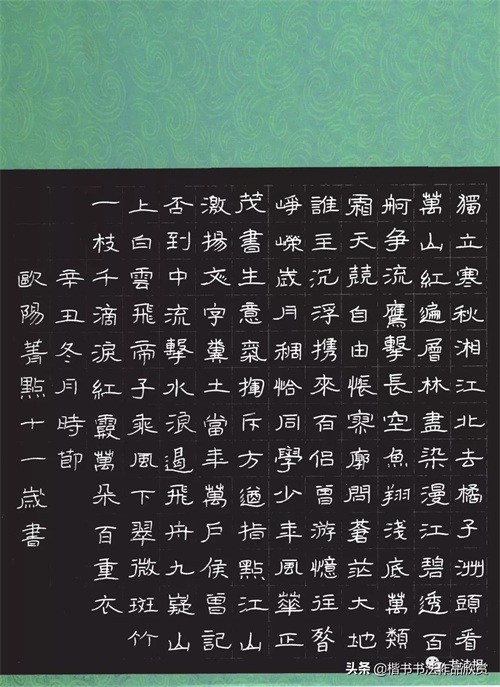 獨立寒秋湘江北去橘子洲頭看
萬山紅遍層林盡染漫江碧透百
舸争流鷹擊長空魚翔淺底萬類
霜天競自由悵寥廓問蒼茫大地
誰主沉浮攜來百侶曾游憶往昔
崢嶸歲月稠恰同學少年風華正
茂書生意氣揮斥方遒指點江山
激揚文字糞土當年萬戶侯曾記
否到中流擊水浪遏飛舟九嶷山
上白雲飛帝子乘風下翠微斑竹
一枝千滴淚紅霞萬朵百重衣
辛丑冬月時節
歐陽菁點十一歲書
头条 @楷书书法作品欣赏